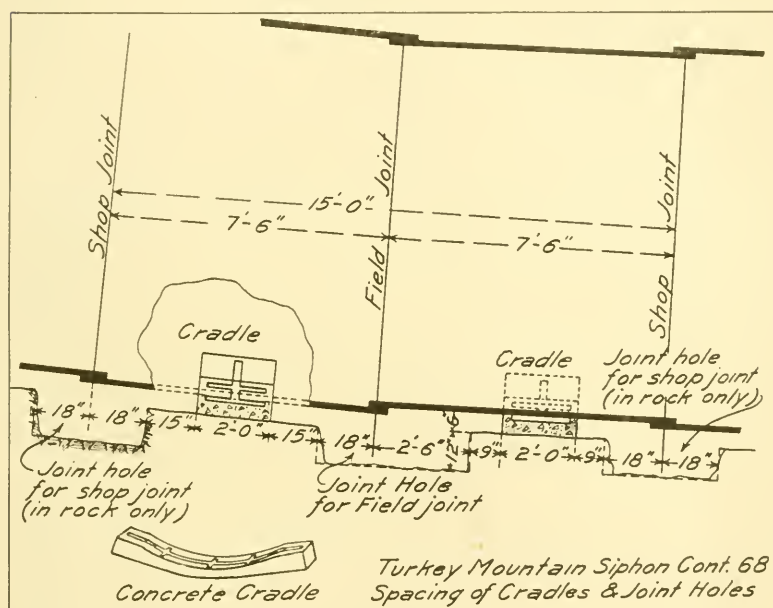 Shop Joint
15'-0"
7'-6"
Field Joint
7'-6"
Shop Joint
Cradle
Cradle
Joint hole
for shop joint
(in rock only)
18" 18" 15" 2'-0" 15" 18" 2'-6" 12" 6" 9" 2'-0" 9" 18" 18"
Joint hole
for shop joint
(in rock only)
Joint Hole
for Field joint
Concrete Cradle
Turkey Mountain Siphon Cont. 68
Spacing of Cradles & Joint Holes